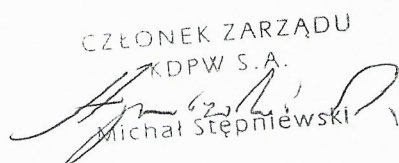 CZŁONEK ZARZĄDU
KDPW S.A.
Michał Stępniewski